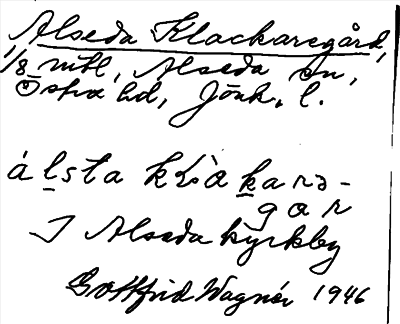 Alseda Klackaregård,
1/8 mtl, Alseda sn,
Östra hd, Jönk. l.
álsta klàkarə-
gar
I Alseda kyrkby
Gottfrid Wagnér 1946